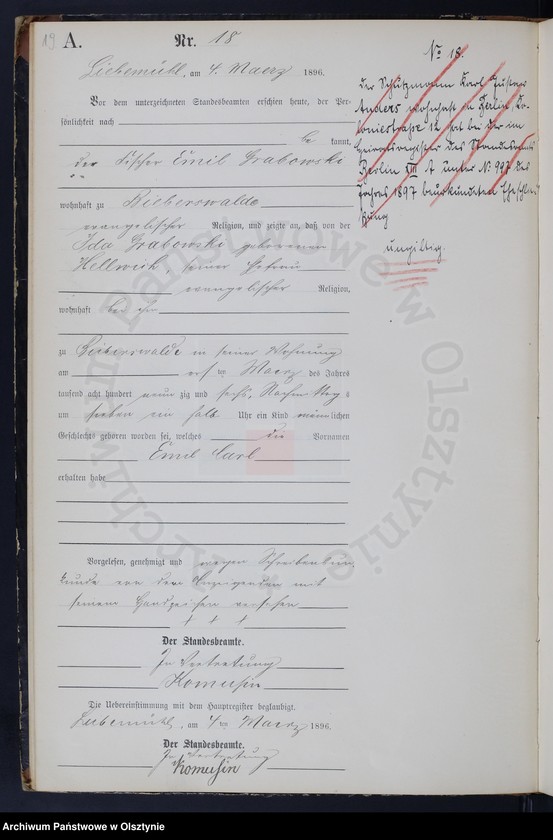 19
A.
Nr. 18
Liebemühl, am 4. Maerz 1896.
Vor dem unterzeichneten Standesbeamten erschien heute, der Per-
sönlichkeit nach
be kannt,
der Fischer Emil Grabowski
wohnhaft zu Bieberswalde
evangelischer Religion, und zeigte an, daß von der
Ida Grabowski geborenen
Hellwich, seiner Ehefrau
evangelischer Religion,
wohnhaft bei ihm
zu Bieberswalde in seiner Wohnung
am ersten Maerz des Jahres
tausend acht hundert neun zig und sechs, Nachmittags
um sieben ein halb Uhr ein Kind männlichen
Geschlechts geboren worden sei, welches die Vornamen
Emil Carl
erhalten habe
Vorgelesen, genehmigt und wegen Schreibensun
kunde von dem Anzeigenden mit
seinem Handzeichen versehen
+ + +
Der Standesbeamte.
In Vertretung
Komussin
Die Uebereinstimmung mit dem Hauptregister beglaubigt.
Liebemühl, am 4ten Maerz 1896.
Der Standesbeamte.
In Vertretung
Komussin
No 18.
Der Schutzmann Karl Gustav
Anders wohnhaft in Berlin Ko-
loniestraße 12 hat bei der im
Heiratsregister des Standesamts
Berlin XIII A unter No 997 des
Jahres 1897 beurkundeten Eheschlie-
ßung
ungiltig.
Archiwum Państwowe w Olsztynie
Archiwum Państwowe w Olsztynie